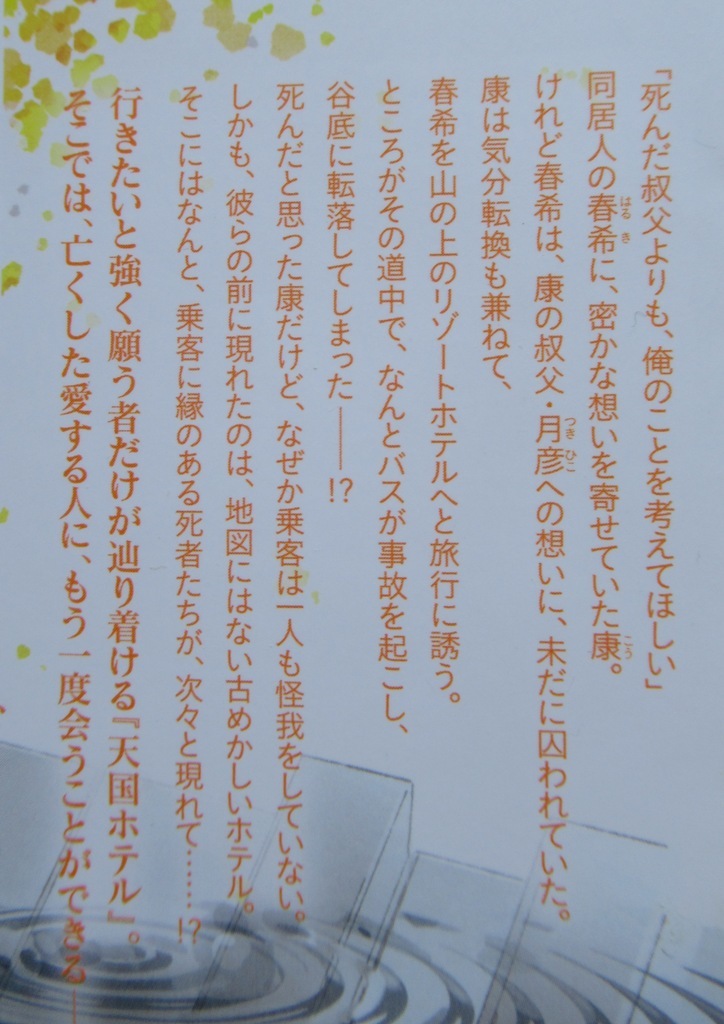 「死んだ叔父よりも、俺のことを考えてほしい」
同居人の春希に、密かな想いを寄せていた康。
けれど春希は、康の叔父・月彦への想いに、未だに囚われていた。
康は気分転換も兼ねて、
春希を山の上のリゾートホテルへと旅行に誘う。
ところがその道中で、なんとバスが事故を起こし、
谷底に転落してしまった――!?
死んだと思った康だけど、なぜか乗客は一人も怪我をしていない。
しかも、彼らの前に現れたのは、地図にはない古めかしいホテル。
そこにはなんと、乗客に縁のある死者たちが、次々と現れて……!?
行きたいと強く願う者だけが辿り着ける『天国ホテル』。
そこでは、亡くした愛する人に、もう一度会うことができる――